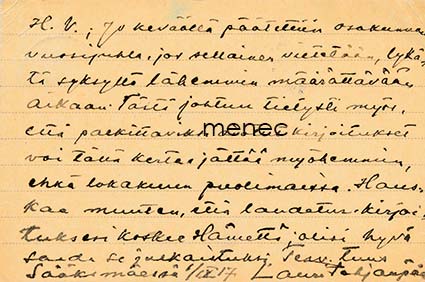 H. V.; Jo keväällä päätettiin osakunnan
vuosijuhla, jos sellainen vietetään, lykä-
tä syksyltä lähemmin määrättävään
aikaan. Tästä johtuu tietysti myös,
että palkittavaksi kirjoitukset
menec
voi tällä kertaa jättää myöhemmin,
ehkä lokakuun puolimaissa. Haus-
kaa muuten, että laudatur-kirjoi-
tuksesi koskee Hämettä, olisi hyvä
saada se julkaistuksi. Terv. tuus
Sääksmäessä 1/IX 17. Lauri Pohjanpää